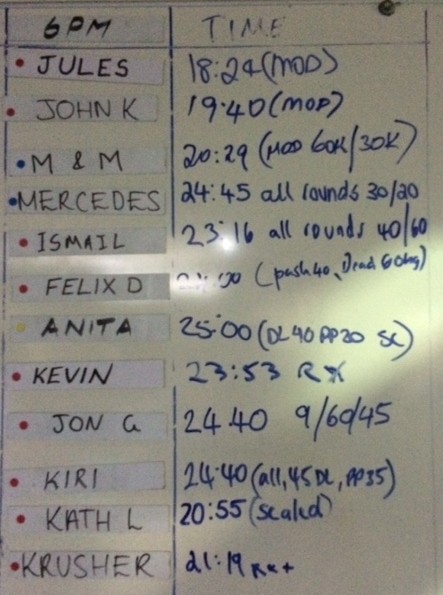 6PM TIME
JULES 18:24 (MOD)
JOHN K 19:40 (MOD)
M & M 20:29 (MOD 60K/30K)
MERCEDES 24:45 all rounds 30/20
ISMAIL 23:16 all rounds 40/60
FELIX D (push 40, Dead 60kg)
ANITA 25:00 (DL 40 PP20 SC)
KEVIN 23:53 RX
JON G 24.40 9/60/45
KIRI 24:40 (all, 45 DL, PP35)
KATH L 20:55 (scaled)
KRUSHER 21:19 RX+